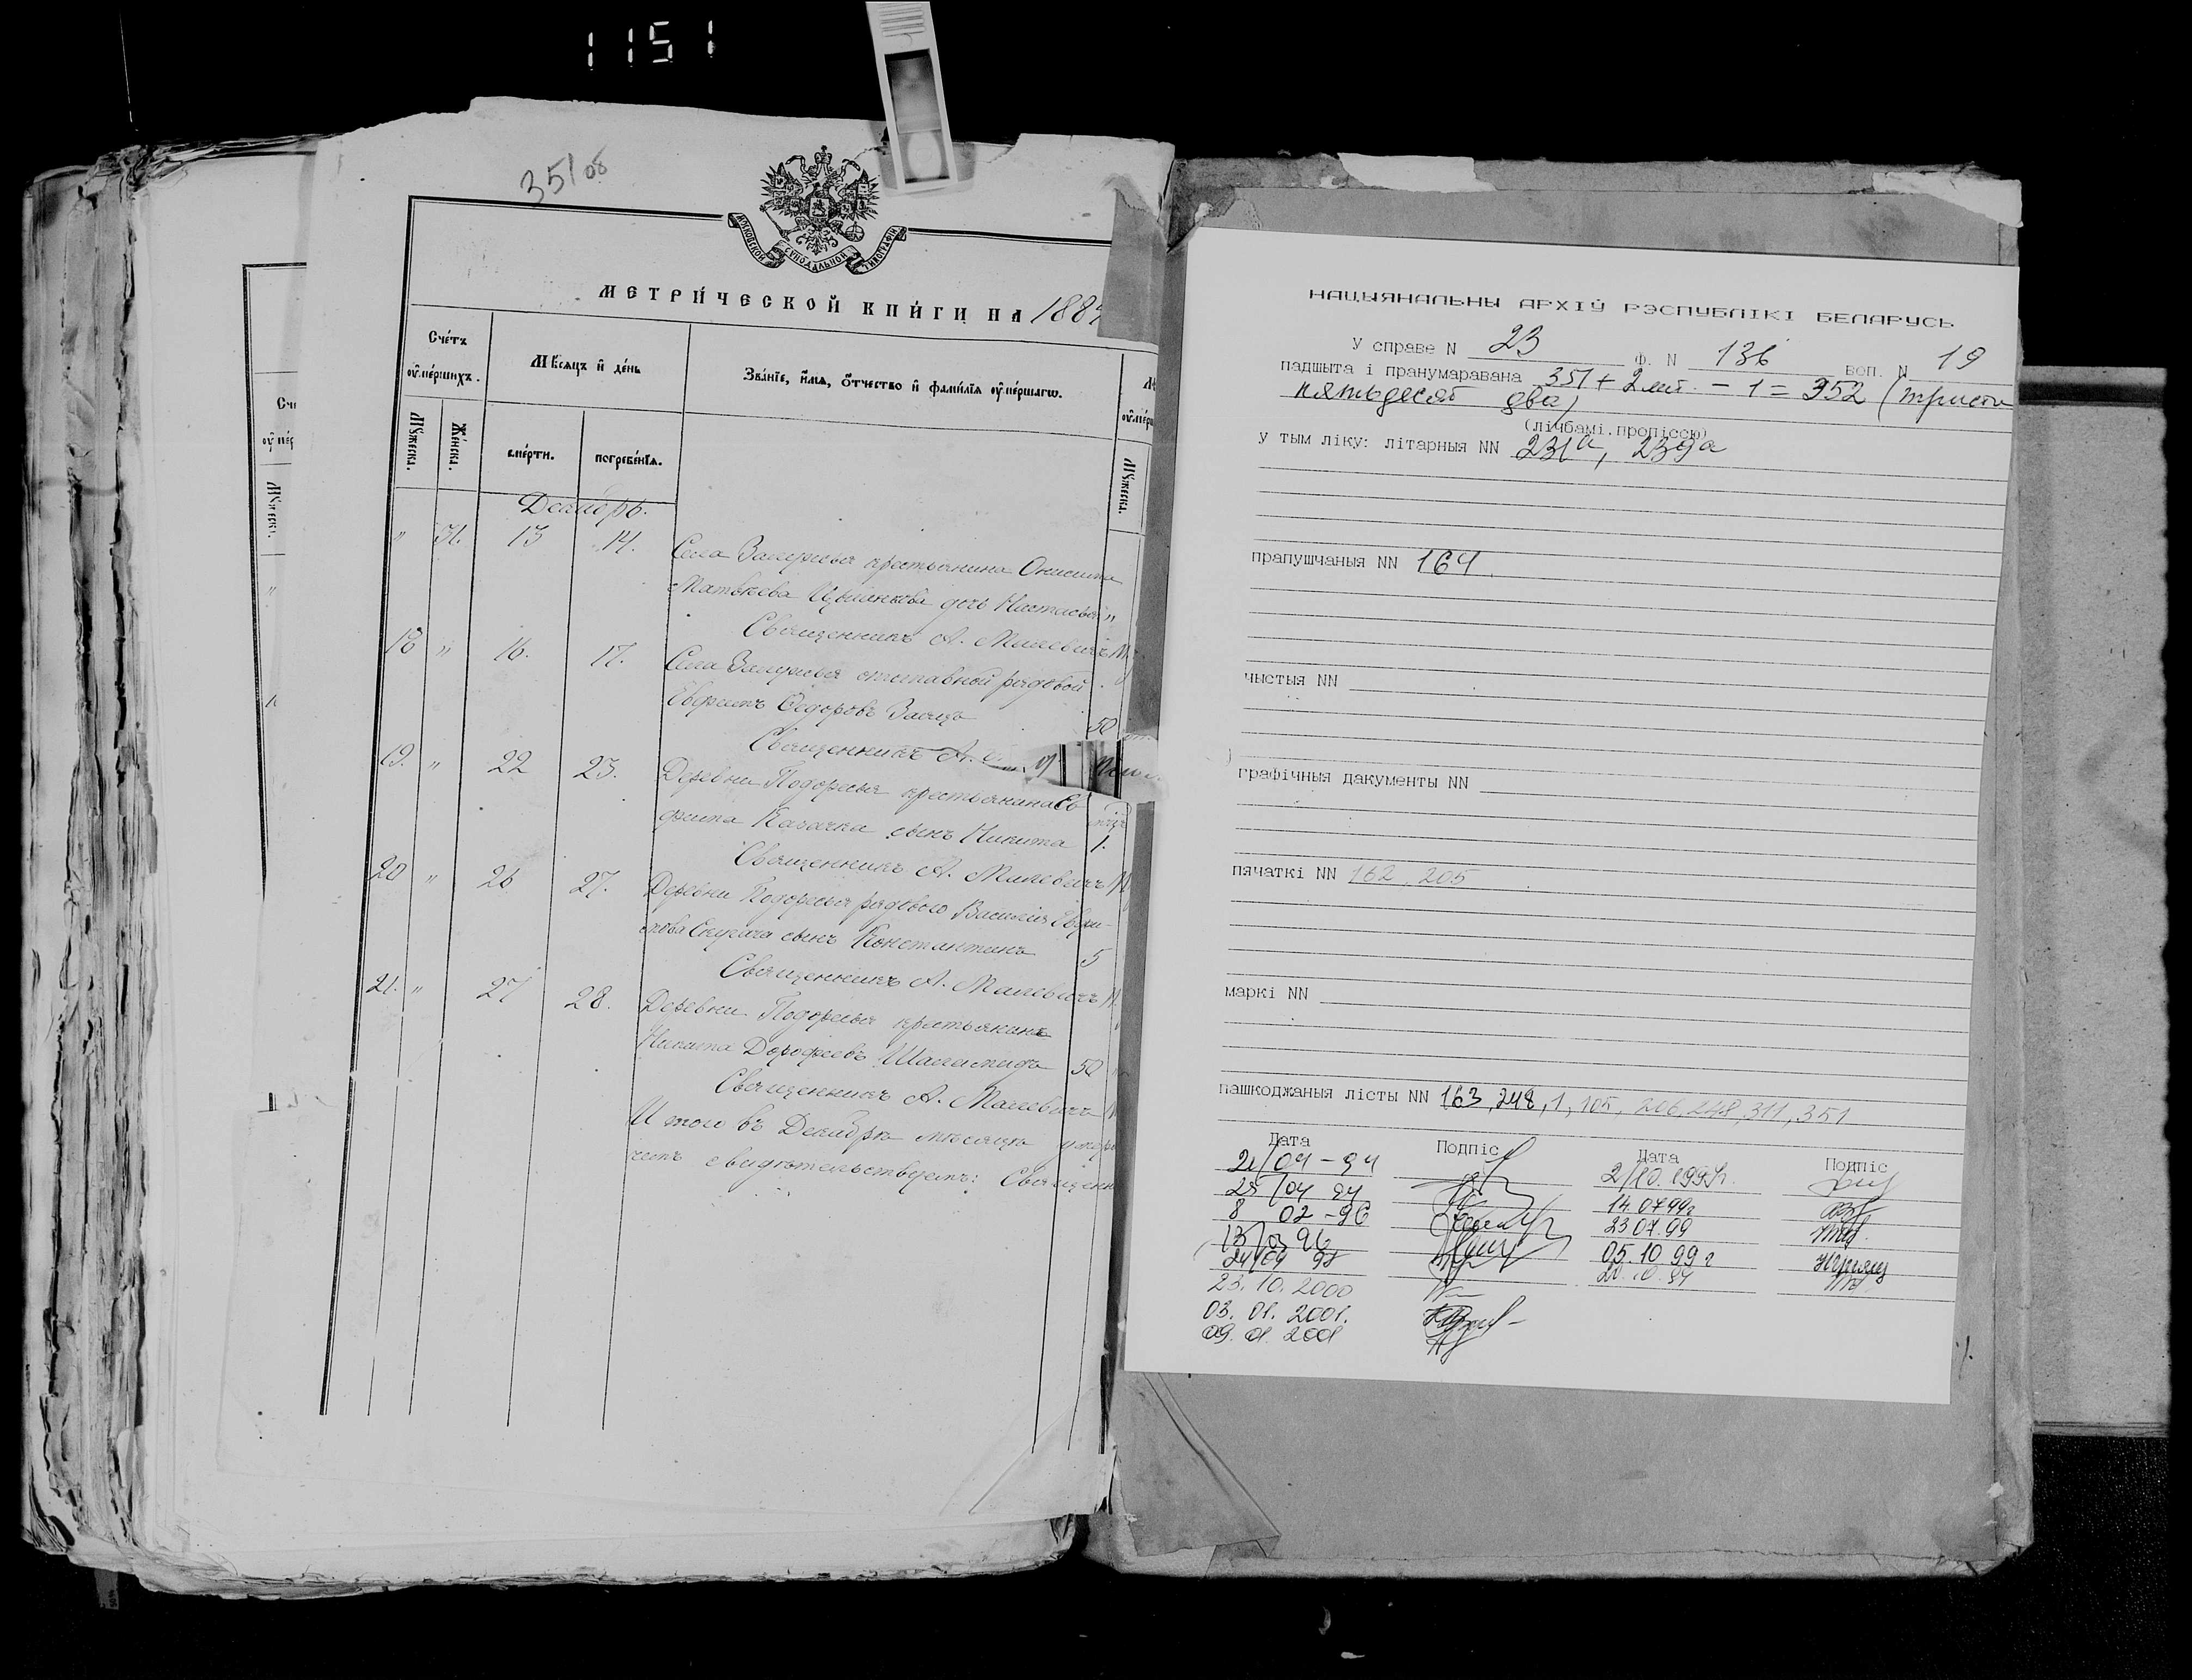 1151
351 об
МОСКОВСКОЙ СѴНОДАЛЬНОЙ ТИПОГРАФІИ
МЕТРИ́ЧЕСКОЙ КНИ́ГИ НА 188
Сче́тъ оу҆ме́ршихъ.
Мѣ́сяцъ и҆ де́нь
Зва́нїе, и҆́мѧ, ѻ҆́тчество и҆ фами́лїѧ оу҆ме́ршагѡ.
Мꙋ́жеска.
Же́нска.
сме́рти.
погребе́нїѧ.
Мꙋ́жеска.
Декабрь.
" 31. 13 14. Села Залужья крестьянина Онисима
Матвѣева дочь Настасья "
Священникъ А. Малевичъ
18 " 16. 17. Села Залужья отставной рядовой
Евфимъ Ѳедоровъ Заяцъ 50
Священникъ А.
19. " 22 23. Деревни Подоресья крестьянина Ев
фима Казачка сынъ Никита 1.
Священникъ А. Малевичъ
20 " 26 27. Деревни Подоресья рядового Василія Евфи-
мова сынъ Константинъ 5
Священникъ А. Малевичъ
21. " 27 28. Деревни Подоресья крестьянинъ
Никита Дорофеевъ 50
Священникъ А. Малевичъ
Итого въ Декабрѣ мѣсяцѣ
свидѣтельствуемъ: Священн
НАЦЫЯНАЛЬНЫ АРХІЎ РЭСПУБЛІКІ БЕЛАРУСЬ
У справе N 23 Ф. N 136 воп. N 19
падшыта і пранумаравана 351 + 2 лит. - 1 = 352 (триста
пятьдесят два)
(лічбамі.пропіссю)
у тым ліку: літарныя NN 231а, 239а
прапушчаныя NN 164
чыстыя NN
графічныя дакументы NN
пячаткі NN 162, 205
маркі NN
пашкоджаныя лісты NN 163, 248, 1, 105, 206, 248, 311, 351
Дата Подпіс Дата Подпіс
21/04-94
25/04 94 14.07 99г
8 02-96 23 07.99
13/03 96 05.10 99г
24/04 98
23.10.2000
03.01.2001.
09.01.2001